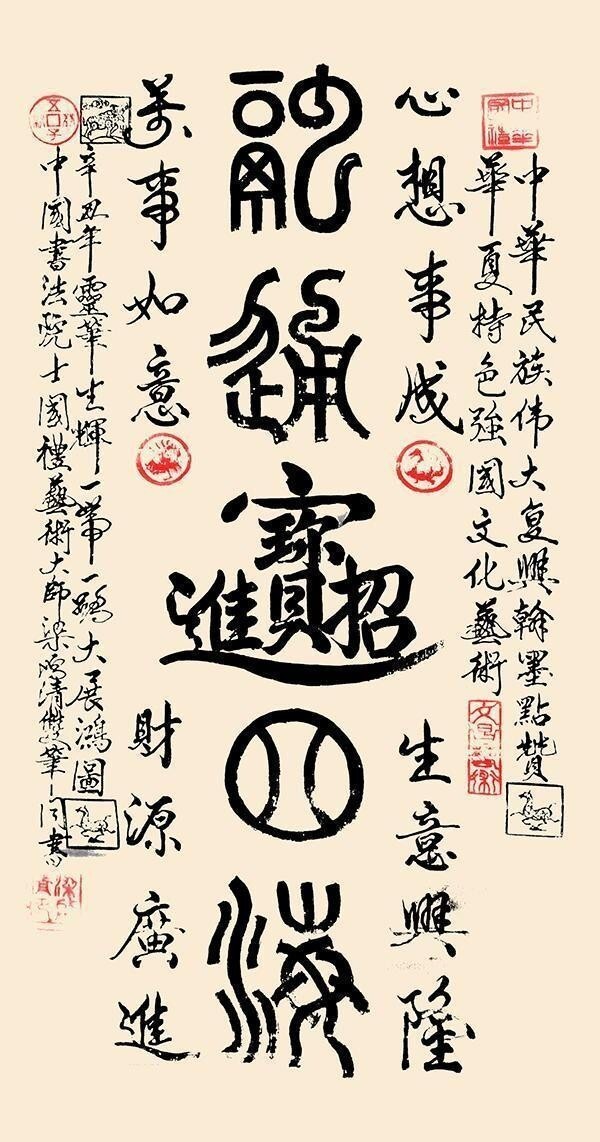 中華民族伟大复興翰墨點贊
華夏特色強國文化藝術
心想事成
生意興隆
融通
招財進寶
四海
萬事如意
財源廣進
辛丑年靈華生輝一帶一路大展鴻圖
中國書法院士國禮藝術大師梁鸿清雙筆同書